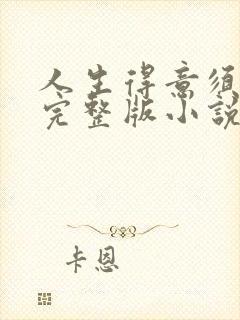 人生得意须
完整版小說
卡恩